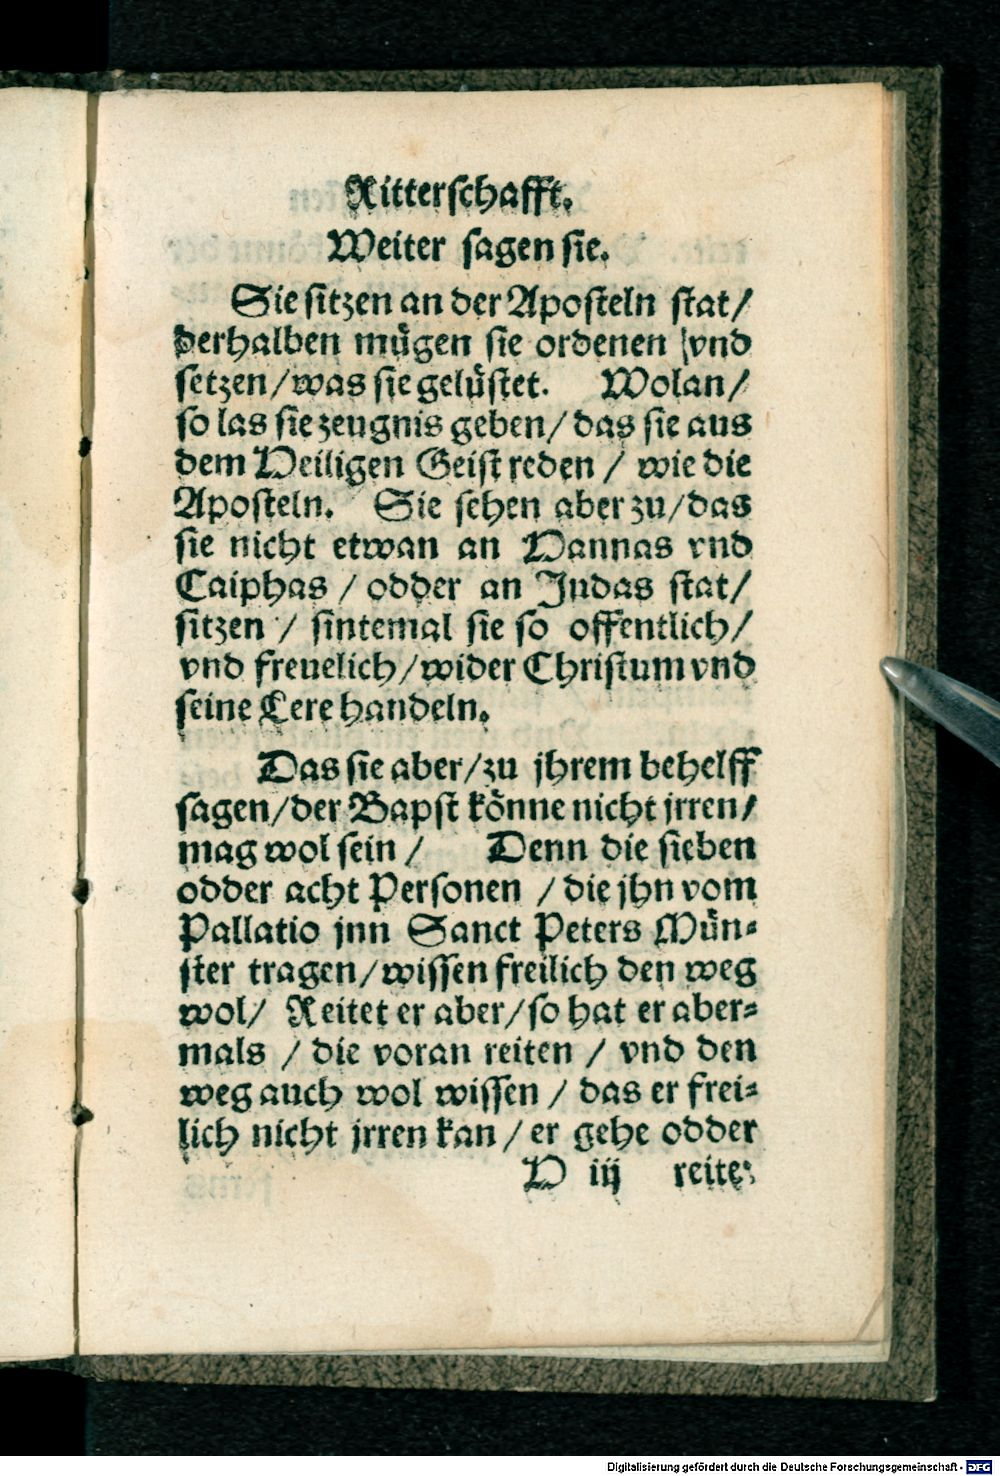 Ritterschafft.
Weiter sagen sie.
Sie sitzen an der Aposteln stat/
derhalben mügen sie ordenen /vnd
setzen/was sie gelüstet. Wolan/
so las sie zeugnis geben/das sie aus
dem Heiligen Geist reden / wie die
Aposteln. Sie sehen aber zu/das
sie nicht etwan an Hannas vnd
Caiphas / odder an Judas stat/
sitzen / sintemal sie so offentlich/
vnd freuelich/wider Christum vnd
seine Lere handeln.
Das sie aber/zu jhrem behelff
sagen/der Bapst könne nicht jrren/
mag wol sein / Denn die sieben
odder acht Personen /die jhn vom
Pallatio jnn Sanct Peters Mün-
ster tragen/wissen freilich den weg
wol/ Reitet er aber/so hat er aber-
mals / die voran reiten / vnd den
weg auch wol wissen / das er frei-
lich nicht jrren kan /er gehe odder
H iij reite
Digitalisierung gefördert durch die Deutsche Forschungsgemeinschaft - DFG